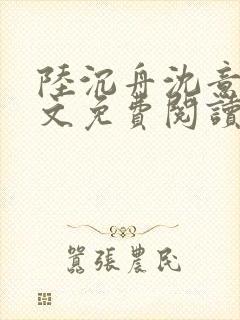 陸沉舟沈意
文免費閱讀
囂張農民